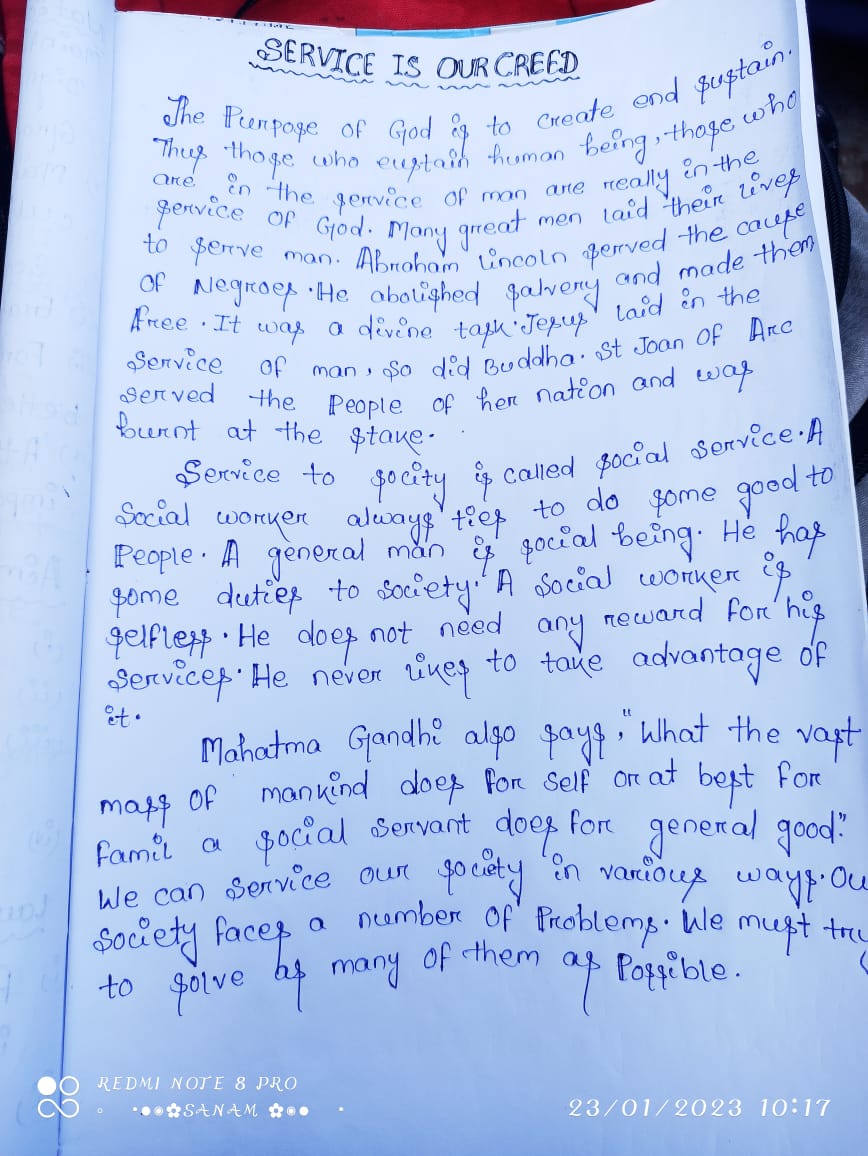 SERVICE IS OUR CREED
The Purpose of God is to create end sustain.
Thus those who eustain human being, those who
are in the service of man are really in the
service of God. Many great men laid their lives
to serve man. Abraham Lincoln served the cause
of Negroes. He abolished salvery and made them
free. It was a divine task. Jesus laid in the
service of man, so did Buddha. St Joan of Arc
served the People of her nation and was
burnt at the stake.
Service to socity is called social service. A
Social worker always ties to do some good to
People. A general man is social being. He has
some duties to society. A social worker is
selfless. He does not need any reward for his
services. He never likes to take advantage of
it.
Mahatma Gandhi also says, "What the vast
mass of mankind does for self or at best for
famil a social servant does for general good."
We can service our society in various ways. Ou
society faces a number of Problems. We must try
to solve as many of them as Possible.
REDMI NOTE 8 PRO
SANAM
23/01/2023 10:17